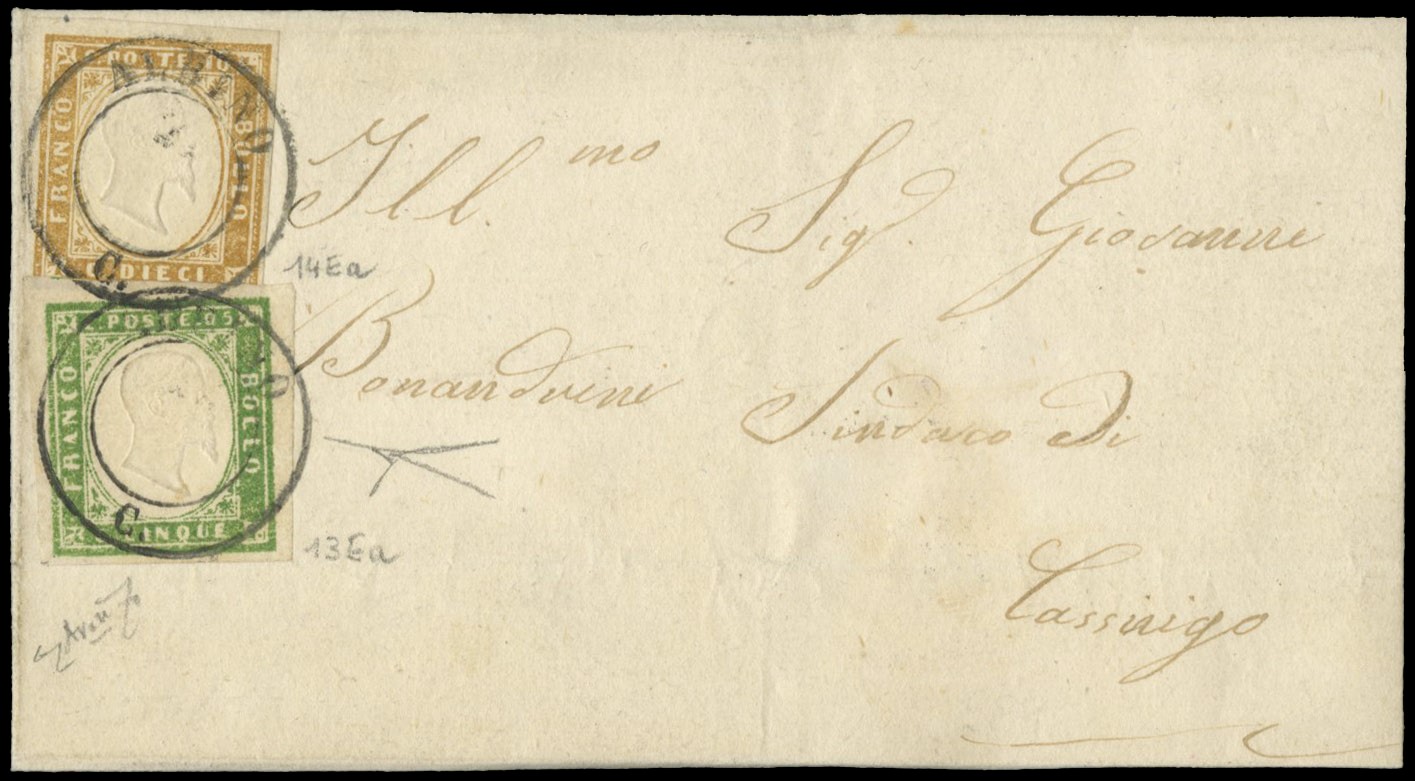 POSTE 10
FRANCO
BOLLO
C. DIECI
ALBINO
C.
14Ea
POSTE 05
FRANCO
BOLLO
C. CINQUE
C.
13Ea
Ill.mo Sig. Giovanni
Sindaco Di
Cassinigo